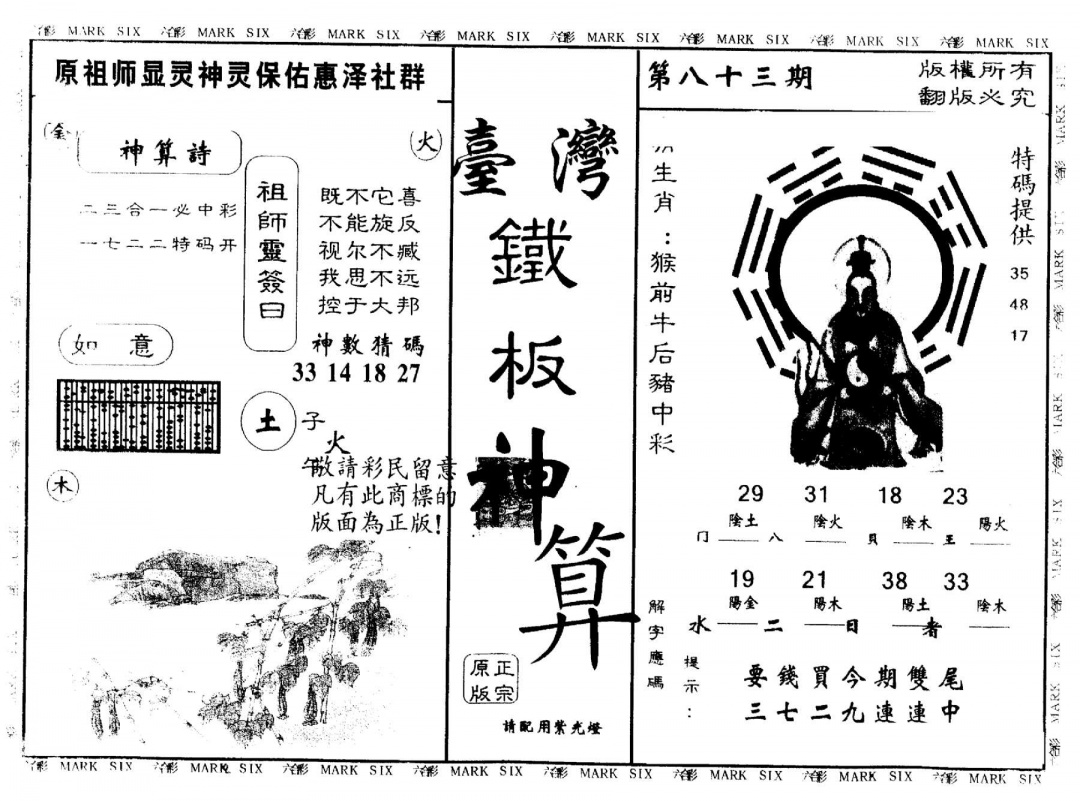 六合彩 MARK SIX 六合彩 MARK SIX 六合彩 MARK SIX 六合彩 MARK SIX 六合彩 MARK SIX 六合彩 MARK SIX 六合彩 MARK SIX 六合彩 MARK SIX
原祖师显灵神灵保佑惠泽社群
金
神算詩
火
二三合一必中彩
一七二二特码开
祖師靈簽曰
既不它喜
不能旋反
视尔不臧
我思不远
控于大邦
神數猜碼
33 14 18 27
如意
土
子
火
午
木
敬請彩民留意
凡有此商標的
版面為正版!
臺灣
鐵
板
神
算
正宗
原版
請配用紫光燈
第八十三期
版權所有
翻版必究
生肖:猴前牛后豬中彩
特碼提供
35
48
17
29 31 18 23
陰土 陰火 陰木 陽火
门 八 貝 王
19 21 38 33
陽金 陽木 陽土 陰木
水 二 日 者
解字應碼
提示:
要錢買今期雙尾
三七二九連連中
六合彩 MARK SIX 六合彩 MARK SIX 六合彩 MARK SIX 六合彩 MARK SIX 六合彩 MARK SIX 六合彩 MARK SIX 六合彩 MARK SIX 六合彩 MARK SIX